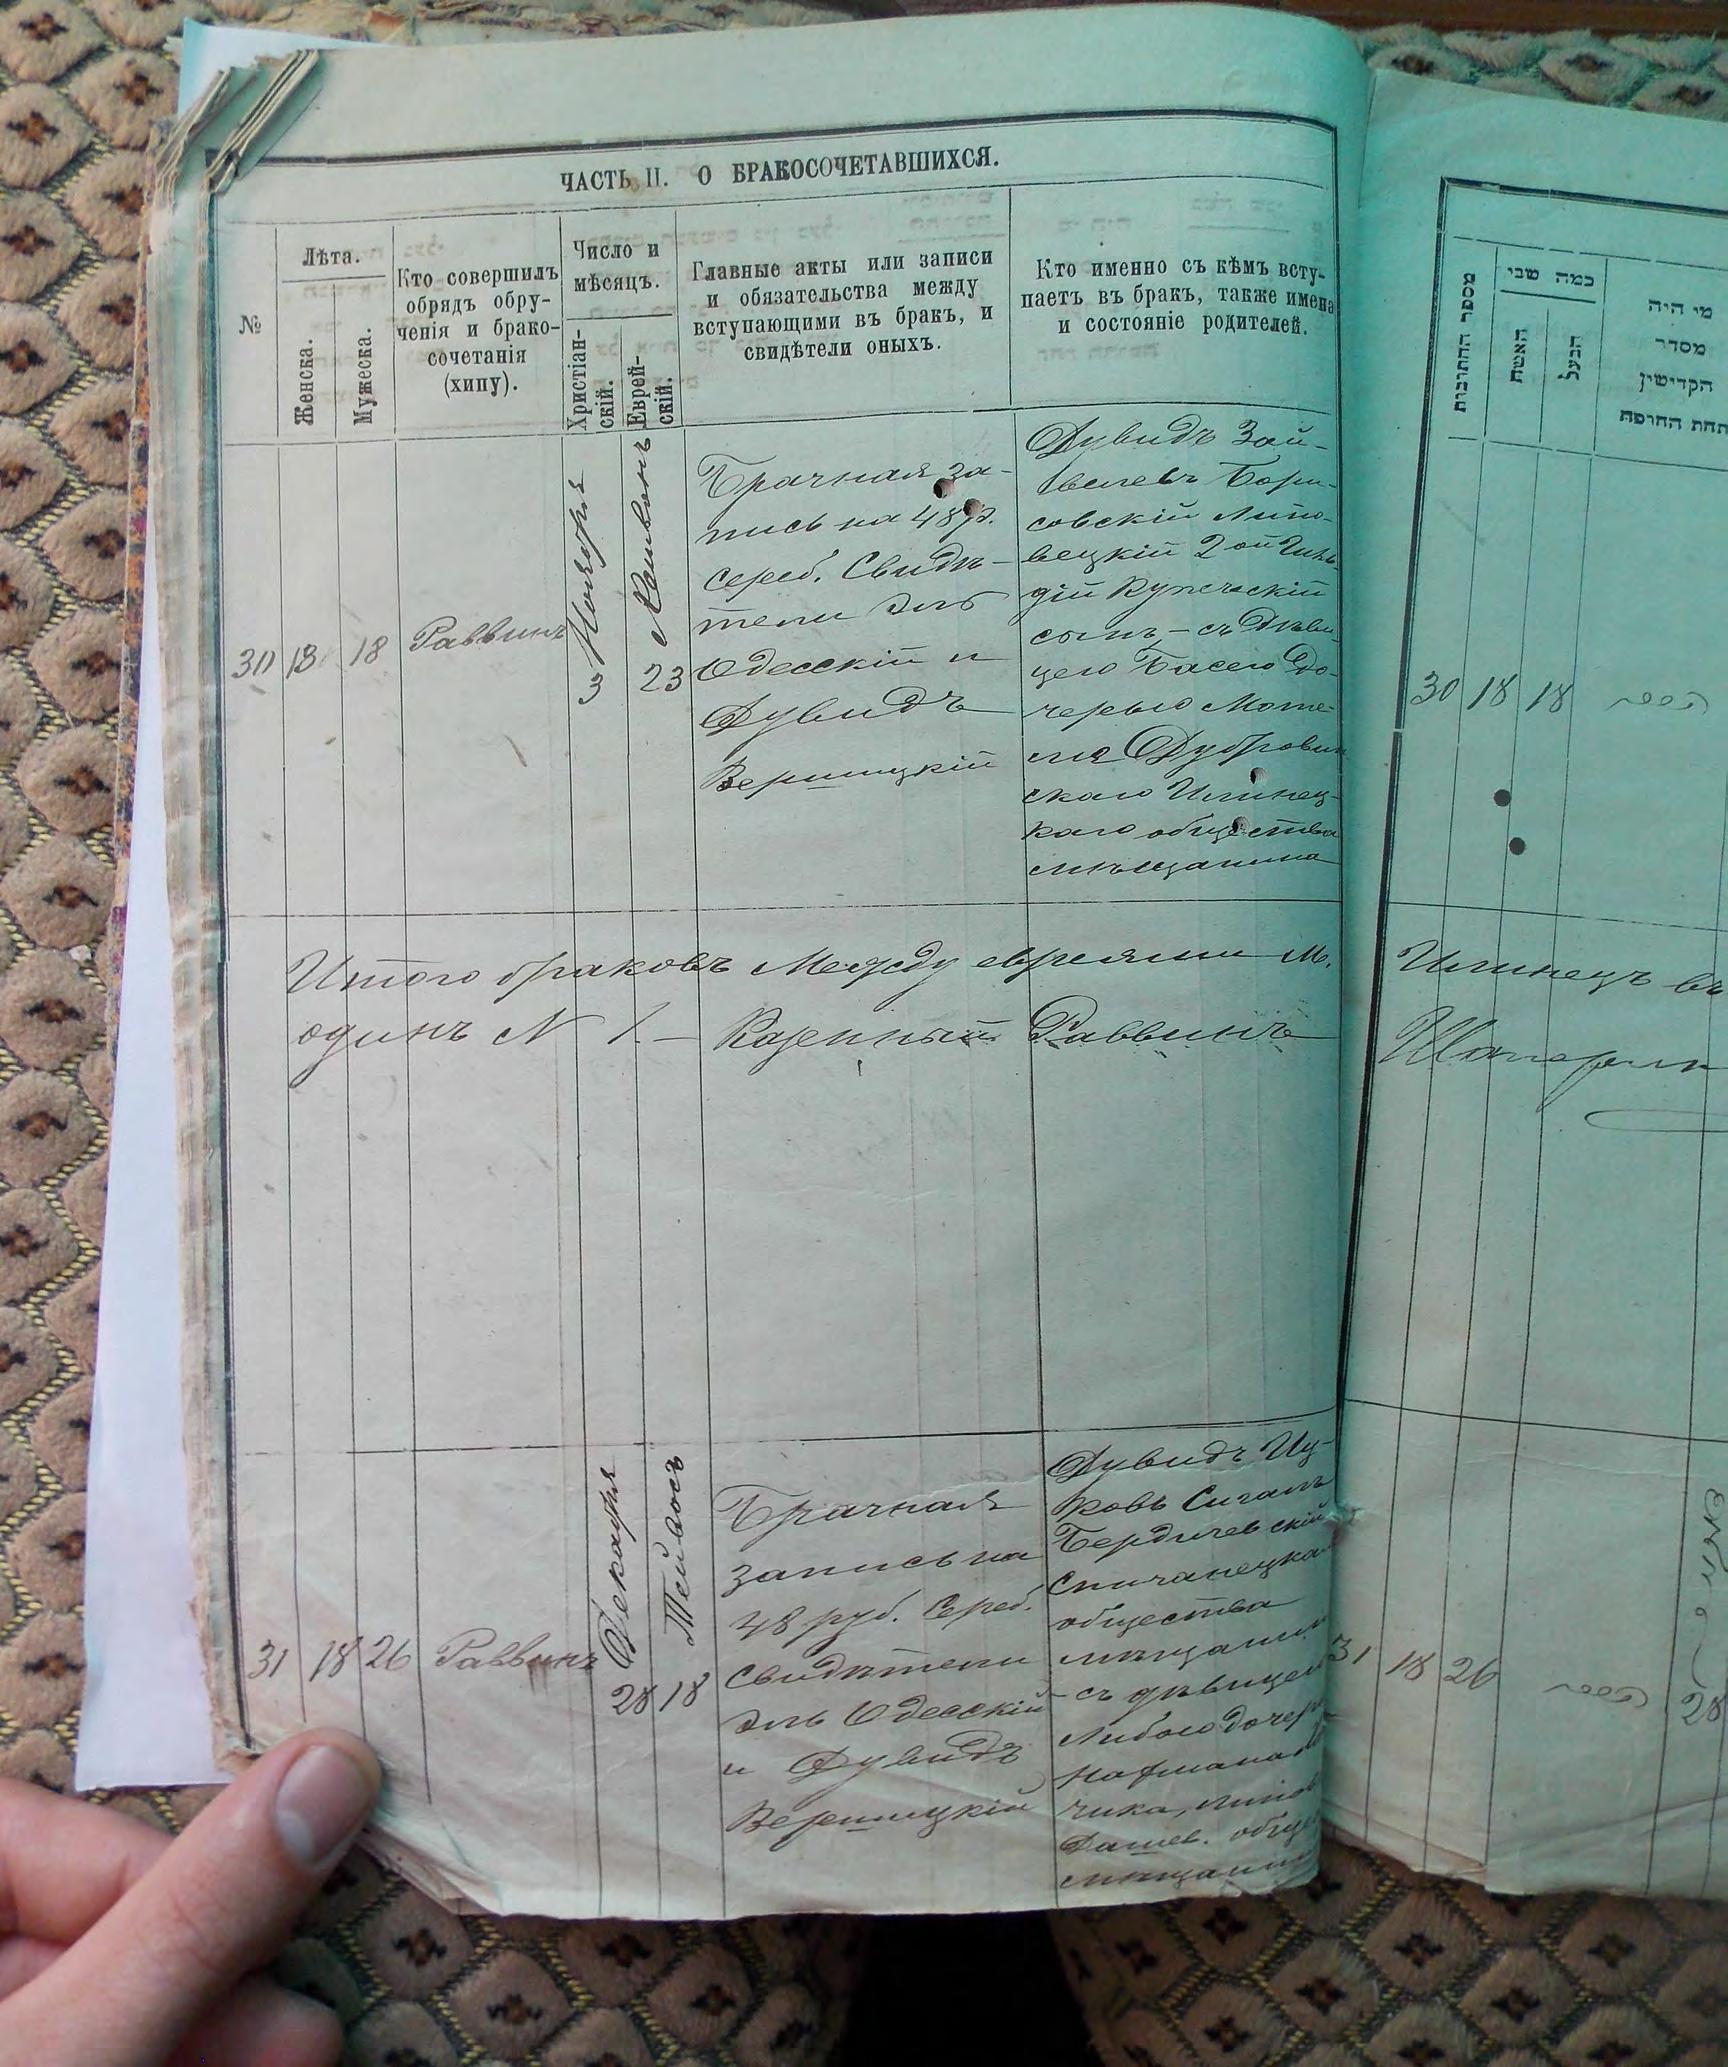 ЧАСТЬ II. О БРАКОСОЧЕТАВШИХСЯ.
№
Лѣта.
Женска.
Мужеска.
Кто совершилъ
обрядъ обру-
ченія и брако-
сочетанія
(хипу).
Число и
мѣсяцъ.
Христіан-
скій.
Еврей-
скій.
Главные акты или записи
и обязательства между
вступающими въ бракъ, и
свидѣтели оныхъ.
Кто именно съ кѣмъ всту-
паетъ въ бракъ, также имена
и состояніе родителей.
30
18
18
Раввинъ
3 Ноября
23
Брачная за-
пись на 48 р.
сереб. Свидѣ-
тели Эль
Одесскій и
Дувидъ
Вершицкій
Дувидъ Зай-
велевъ Бори-
совскій Липо-
вецкій 2ой Гиль-
дій Купеческій
сынъ, - съ Дѣви-
цею Басею До-
черью Моте-
ля Дубровин
скаго Илинец-
каго общества
мѣщанина
Итого браковъ Между евреями М.
одинъ N 1. - Казенный Раввинъ
31
18
26
Раввинъ
Декабря
28
Тейвосъ
18
Брачная
запись на
48 руб. Сереб.
свидѣтели
Эль Одесскій
и Дувидъ
Вершицкій
Дувидъ Иц-
ковъ Сигалъ
Бердичевскій
Спичанецка
общества
мѣщанин
- съ дѣвицею
Либою дочер
Нафтана
чика, липов
Дашев. обще
мѣщанин
מספר החתונות
כמה שני
האשה
הבעל
מי היה
מסדר
הקדישין
תחת החופה
30
18
18
Илинецъ въ
31
18
26
28